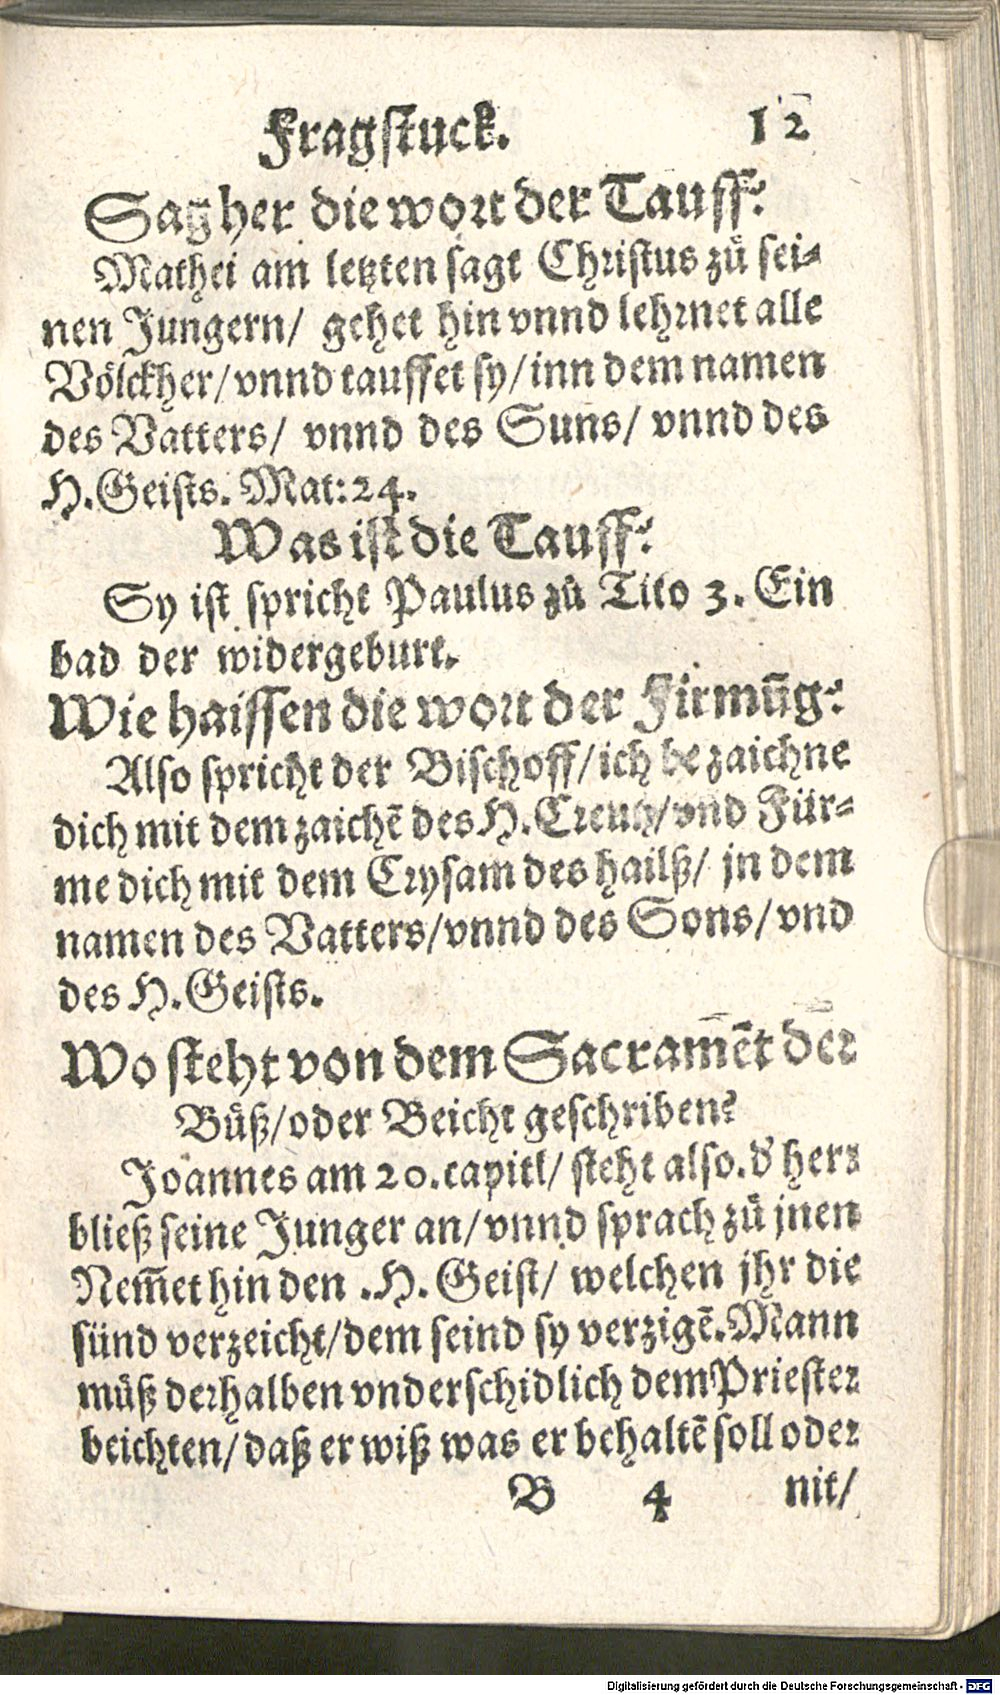 Fragstuck. 12
Sag her die wort der Tauff?
Mathei am letzten sagt Christus zů sei-
nen Jungern/ gehet hin vnnd lehrnet alle
Völckher/ vnnd tauffet sy/ inn dem namen
des Vatters/ vnnd des Suns/ vnnd des
H. Geists. Mat: 24.
Was ist die Tauff?
Sy ist spricht Paulus zů Tito 3. Ein
bad der widergeburt.
Wie haissen die wort der Firmũg?
Also spricht der Bischoff/ ich bezaichne
dich mit dem zaichẽ des H. Creutz/ vnd Für-
me dich mit dem Crysam des hailß/ jn dem
namen des Vatters/ vnnd des Sons/ vnd
des H. Geists.
Wo steht von dem Sacram̃ẽt der
Bůß/ oder Beicht geschriben?
Joannes am 20. capitl/ steht also. d' herr
bließ seine Junger an/ vnnd sprach zů jnen
Nem̃et hin den .H. Geist/ welchen jhr die
sünd verzeicht/ dem seind sy verzigẽ. Mann
můß derhalben vnderschidlich dem Priester
beichten/ daß er wiß was er behaltẽ soll oder
B 4 nit/
Digitalisierung gefördert durch die Deutsche Forschungsgemeinschaft - DFG